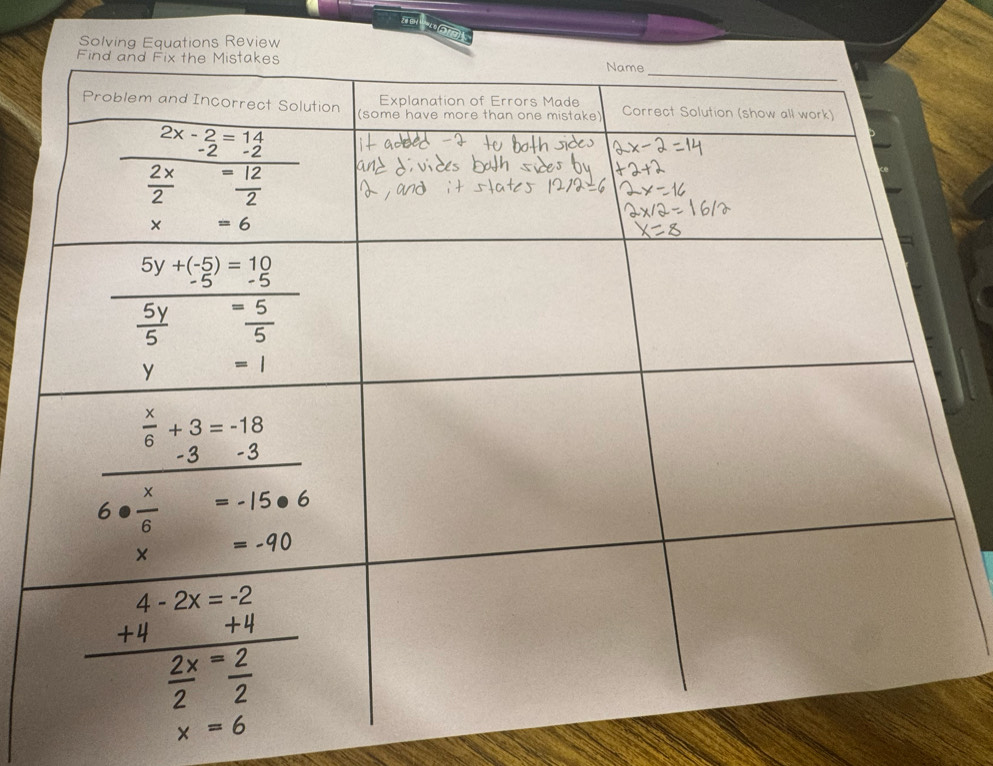 Solving Equations Review
Find and Fix the Mistakes
Name
Problem and Incorrect Solution
Explanation of Errors Made
(some have more than one mistake)
Correct Solution (show all work)
2x - 2 = 14
-2 -2
2x/2 = 12/2
x = 6
it added -2 to both sides
and divides bath sides by
2, and it states 12/2=6
2x-2=14
+2+2
2x=16
2x/2=16/2
x=8
5y +(-5) = 10
-5 -5
5y/5 = 5/5
y = 1
x/6 + 3 = -18
-3 -3
6 • x/6 = -15 • 6
x = -90
4 - 2x = -2
+4 +4
2x/2 = 2/2
x = 6